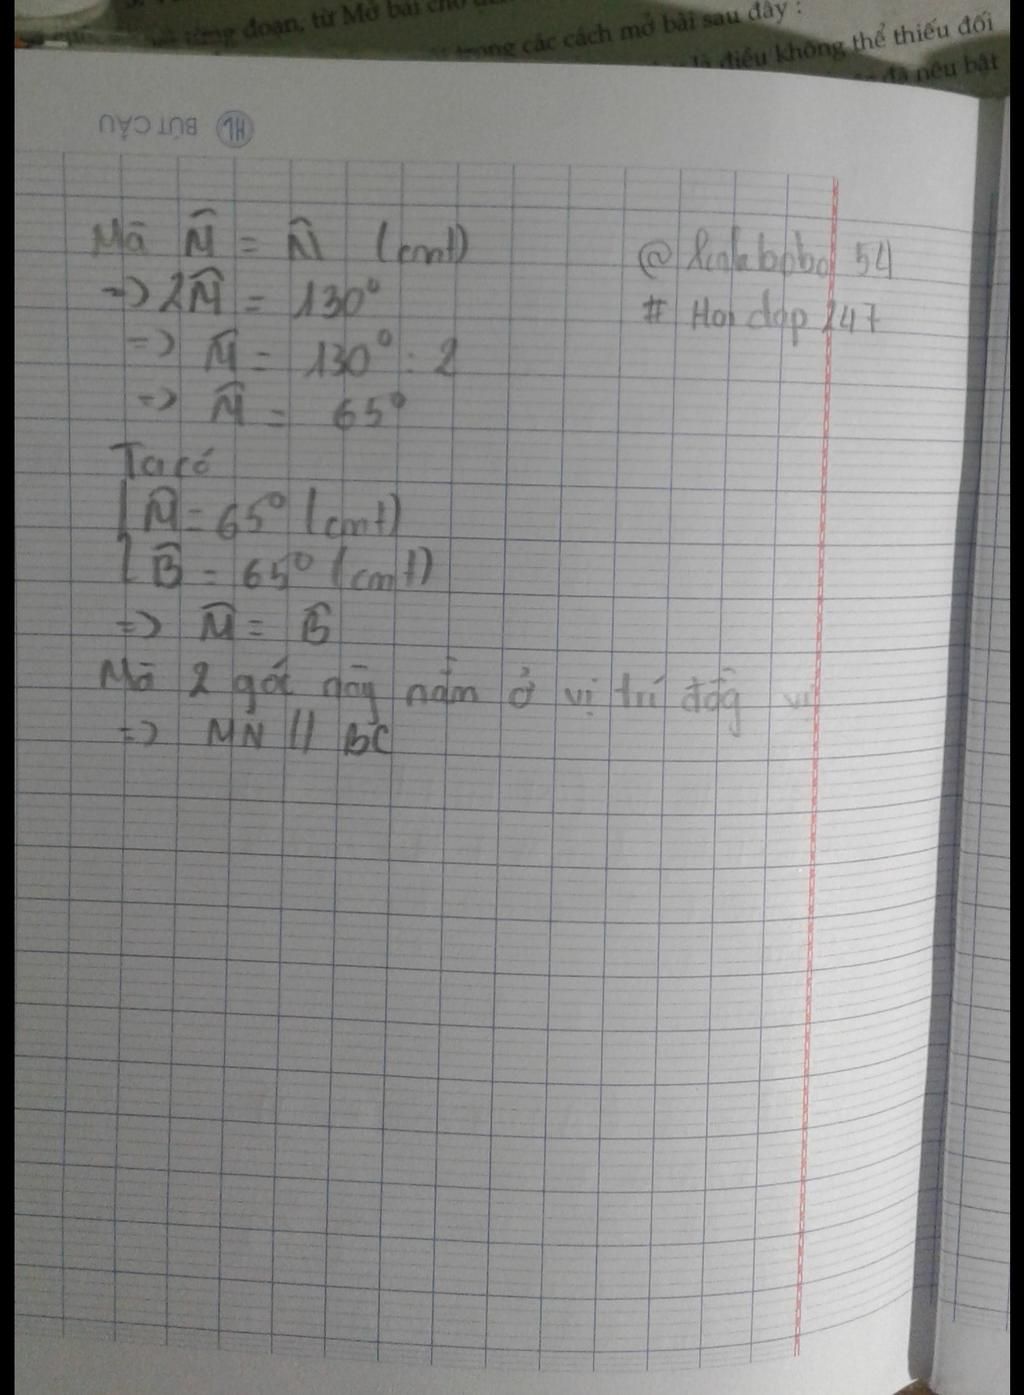 từng đoạn, từ Mở bài
trong các cách mở bài sau đây :
là điều không thể thiếu đối
đã nêu bật
HL BÚT CÂU
Mà M̂ = N̂ (cmt)
=> 2M̂ = 130°
=> M̂ = 130° : 2
=> M̂ = 65°
Ta có
{ M̂ = 65° (cmt)
{ B̂ = 65° (cmt)
=> M̂ = B̂
Mà 2 góc này nằm ở vị trí đồg vị
=> MN // BC
@ 54
# Hoi dap 247